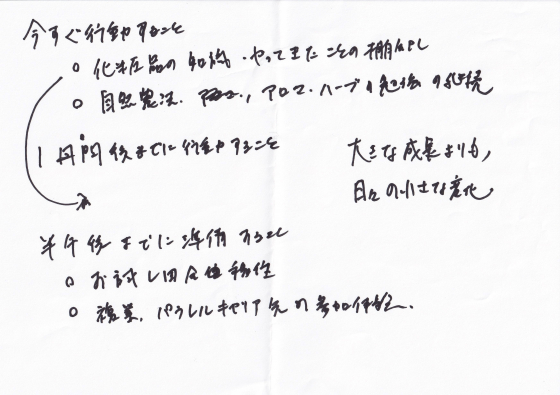 今すぐ行動すること
○ 化粧品の知識・やってきたことの棚卸し
○ 自然農法、アロマ・ハーブの勉強の継続
1ヶ月後までに行動すること
大きな成果よりも、
日々の小さな変化
半年後までに準備すること
○ お試し田舎移住
○ 複業、パラレルキャリア先の参加体験。